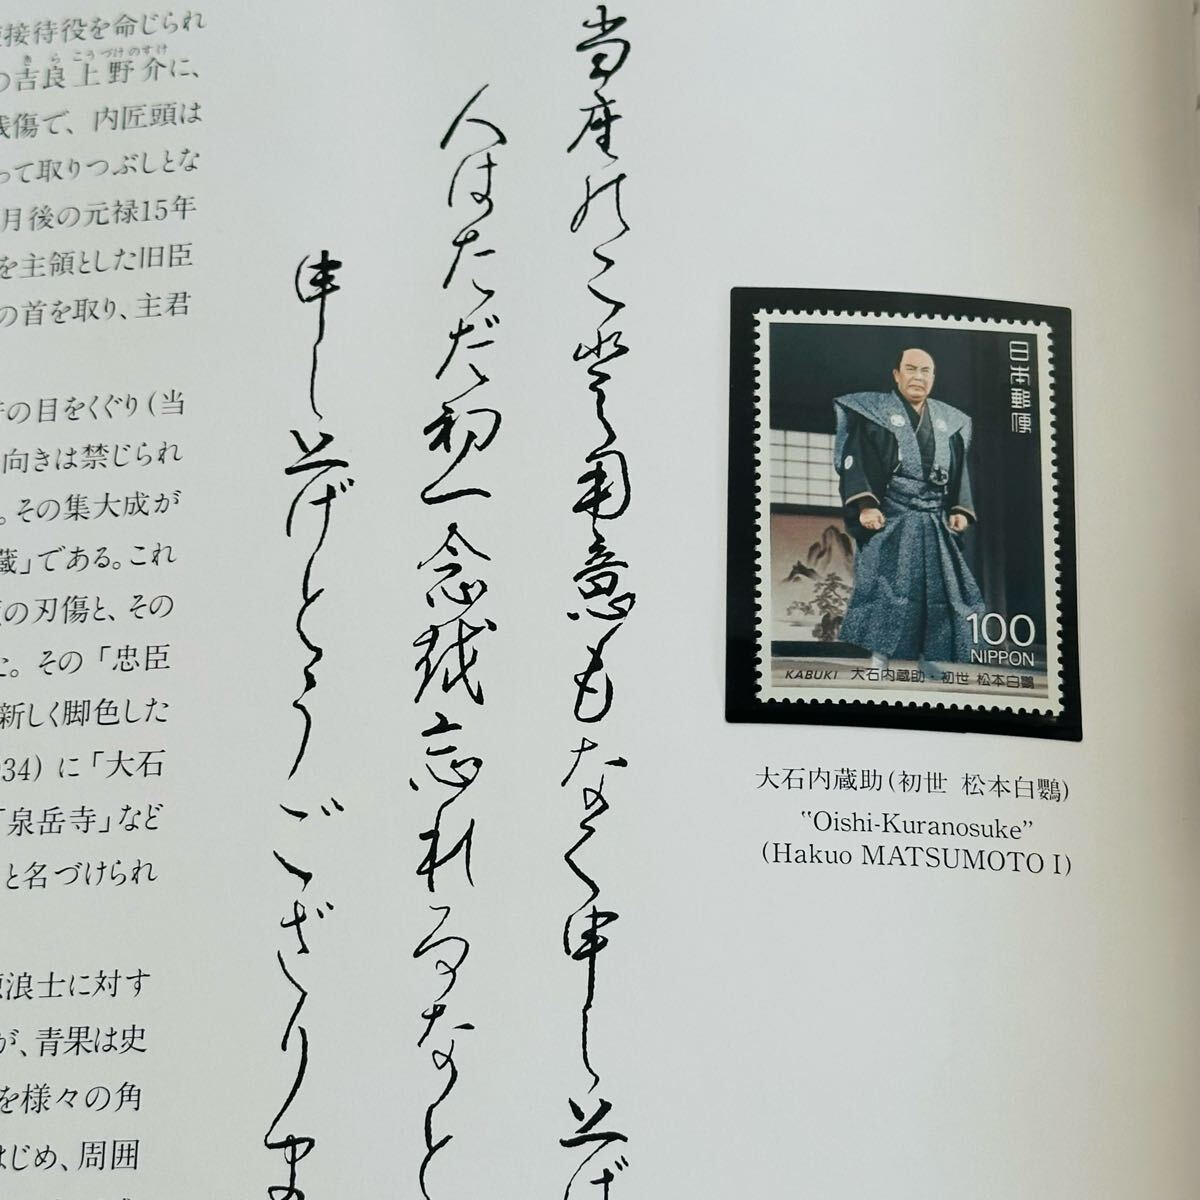 接待役を命じられ
の吉良上野介に、
きら こうづけのすけ
傷で、内匠頭は
って取りつぶしとな
月後の元禄15年
を主領とした旧臣
の首を取り、主君
の目をくぐり(当
向きは禁じられ
。その集大成が
蔵」である。これ
の刃傷と、その
た。その「忠臣
新しく脚色した
34)に「大石
「泉岳寺」など
と名づけられ
浪士に対す
が、青果は史
を様々の角
はじめ、周囲
当座のこと用意もなく申し上げ
人はただ初一念を忘れるなと
申し上げとうござりま
日本郵便
100
NIPPON
KABUKI 大石内蔵助・初世 松本白鸚
大石内蔵助(初世 松本白鸚)
“Oishi-Kuranosuke”
(Hakuo MATSUMOTO I)